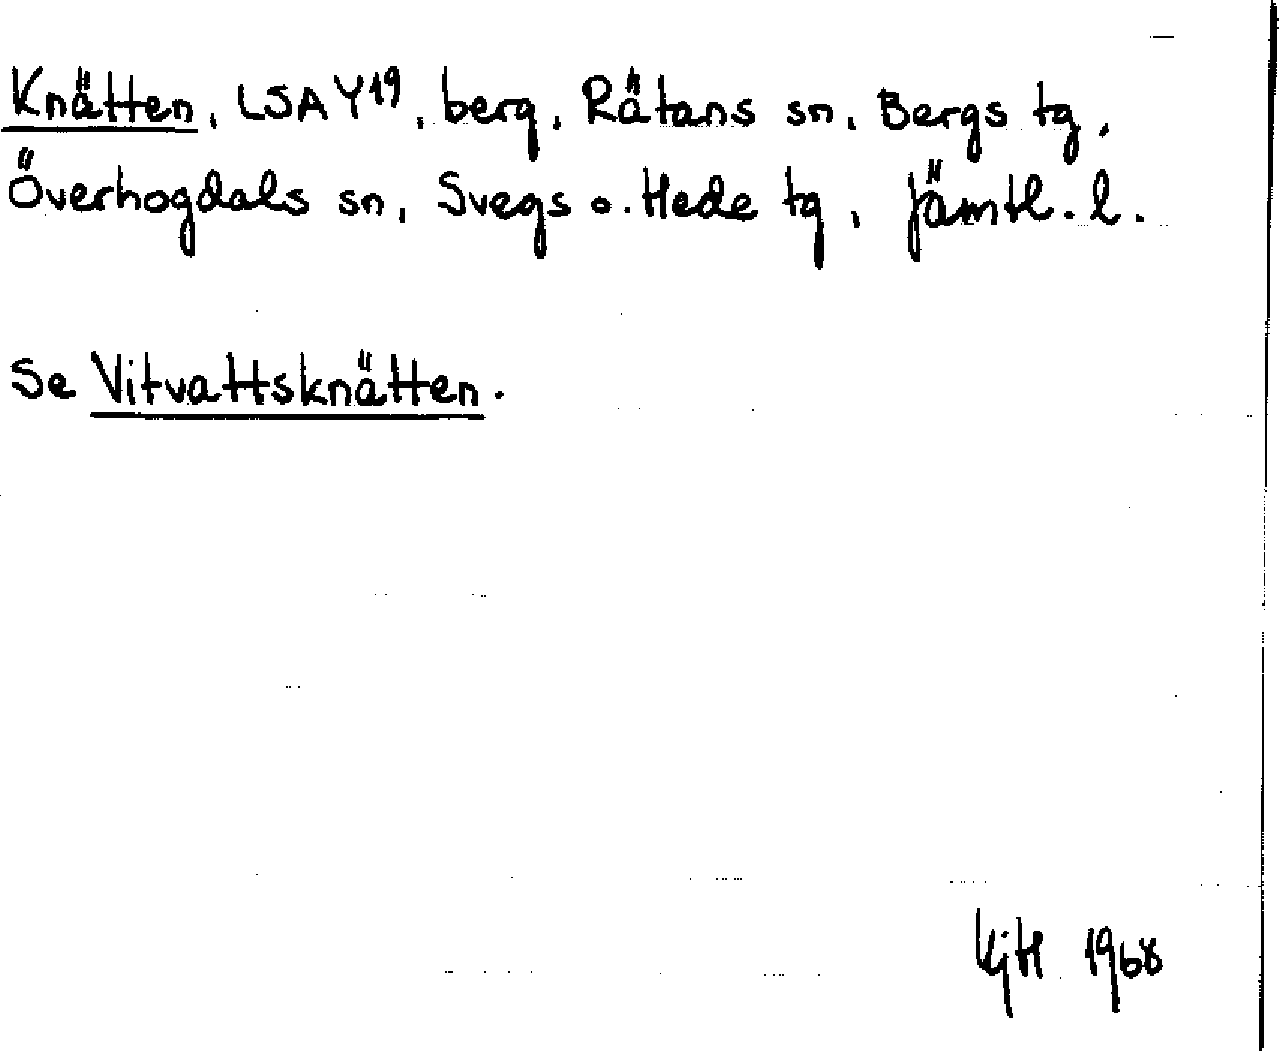 Knätten, LSA Y19, berg, Rätans sn, Bergs tg,
Överhogdals sn, Svegs o. Hede tg, Jämtl. l.
Se Vitvattsknätten.
KjH 1968